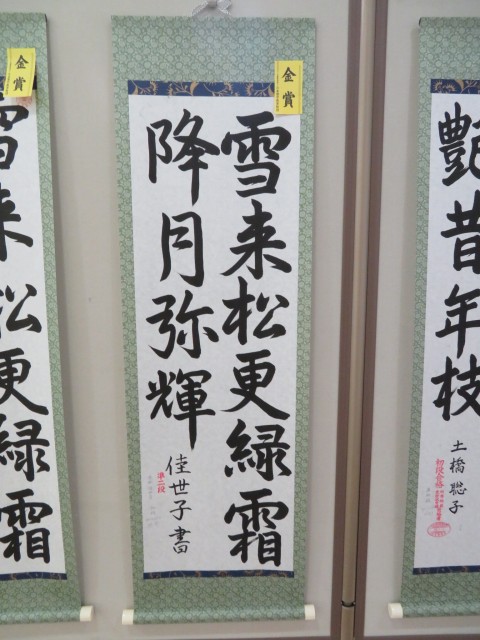 金賞
雪来松更緑霜
降月弥輝
佳世子書
準二段
金賞
雪来松更緑霜
艶昔年枝
土橋聡子
初段合格